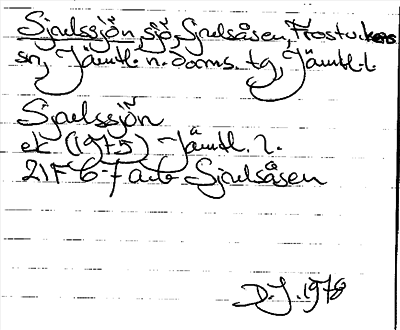 Sjoelssjön, sjö, Sjoelsåsen, Frostvikens
sn, Jämtl. n. doms. tg, Jämtl. l.
Sjoelssjön
ek (1975) Jämtl. l.
21F 6-f a-b Sjoelsåsen
D.J. 1978